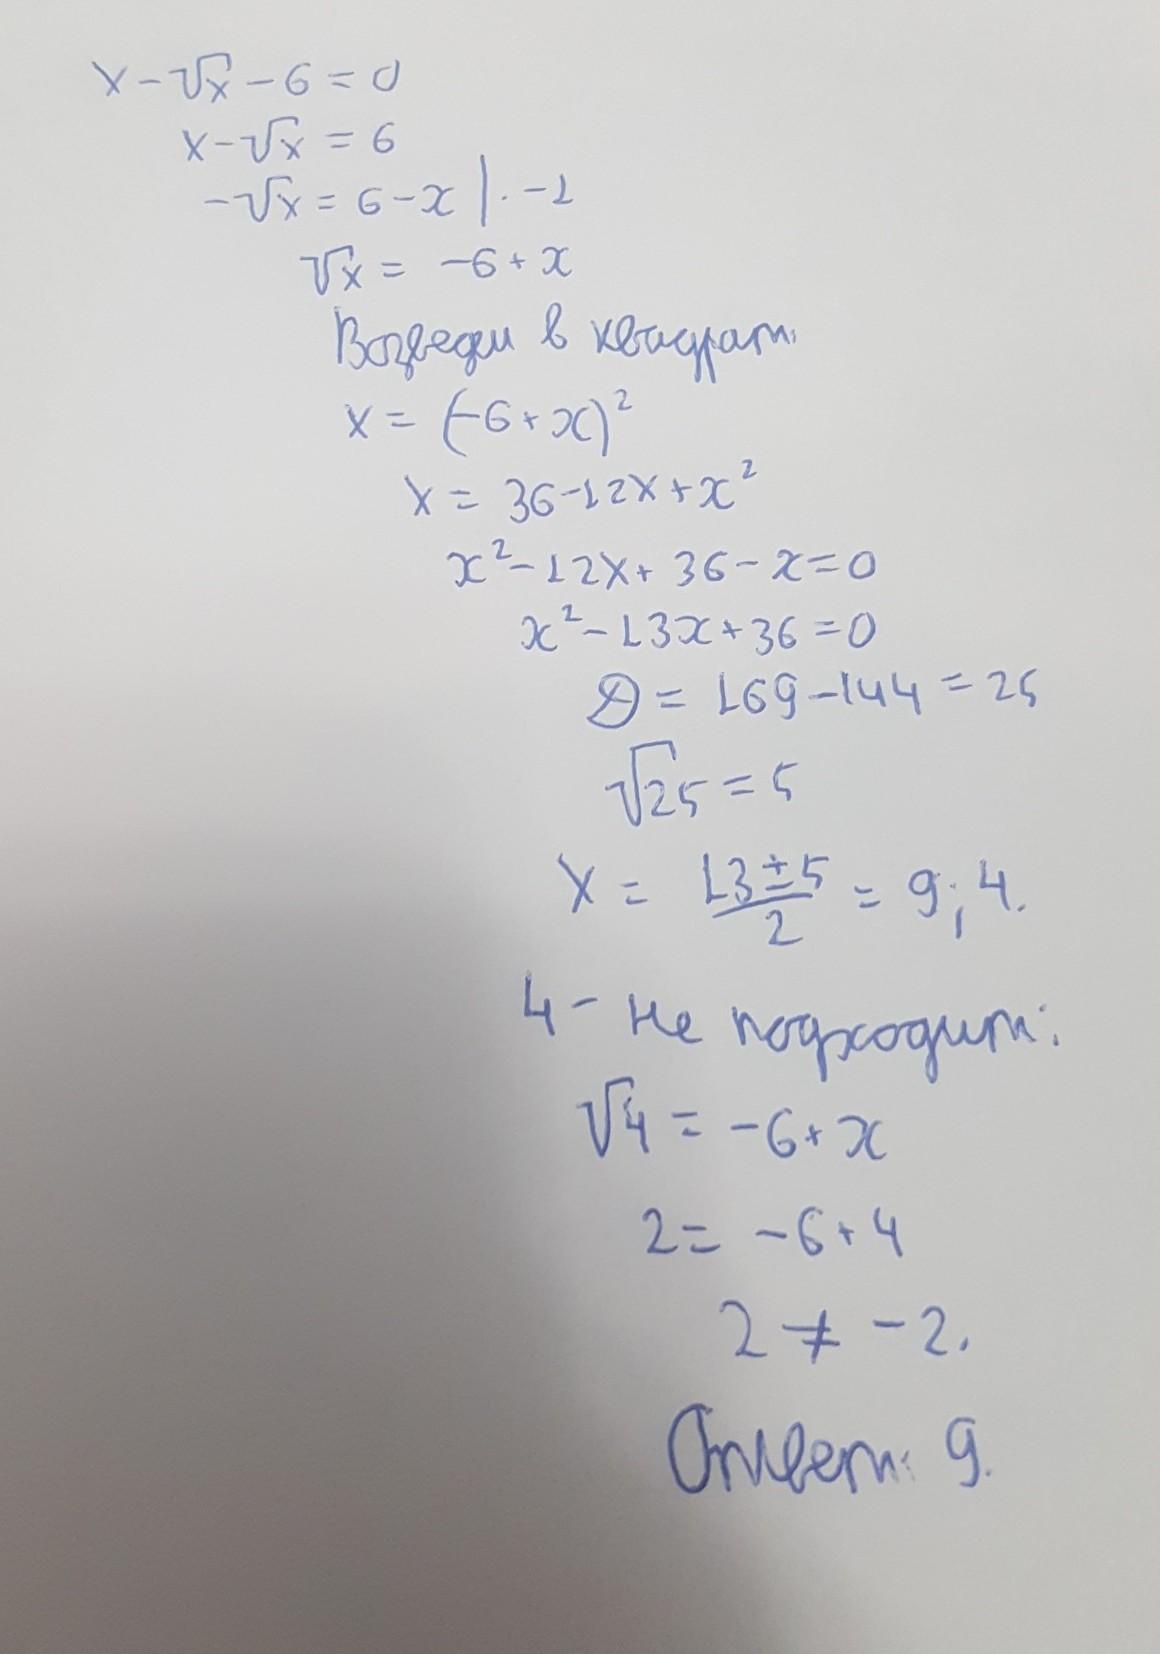 x-√x-6=0
x-√x=6
-√x=6-x |·-1
√x=-6+x
Возведи в квадрат:
x=(-6+x)²
x=36-12x+x²
x²-12x+36-x=0
x²-13x+36=0
D=169-144=25
√25=5
x=(13±5)/2=9;4.
4-не подходит:
√4=-6+x
2=-6+4
2≠-2.
Ответ: 9.